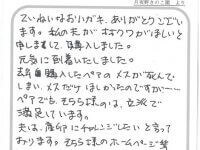 安曇野きのこ園 より
ていねいなおハガキ、ありがとうござい
ます。私の夫が オオクワがほしいと
申しまして、購入しました。
元気に到着いたしました。
購入したペアのメスが死んで
しまい、メスだけ ほしかったのですが…
ペアでも、そちら様のは、立派で
満足しています。
夫は、産卵にチャレンジしたいと言って
おります。そちら様のホームページ等